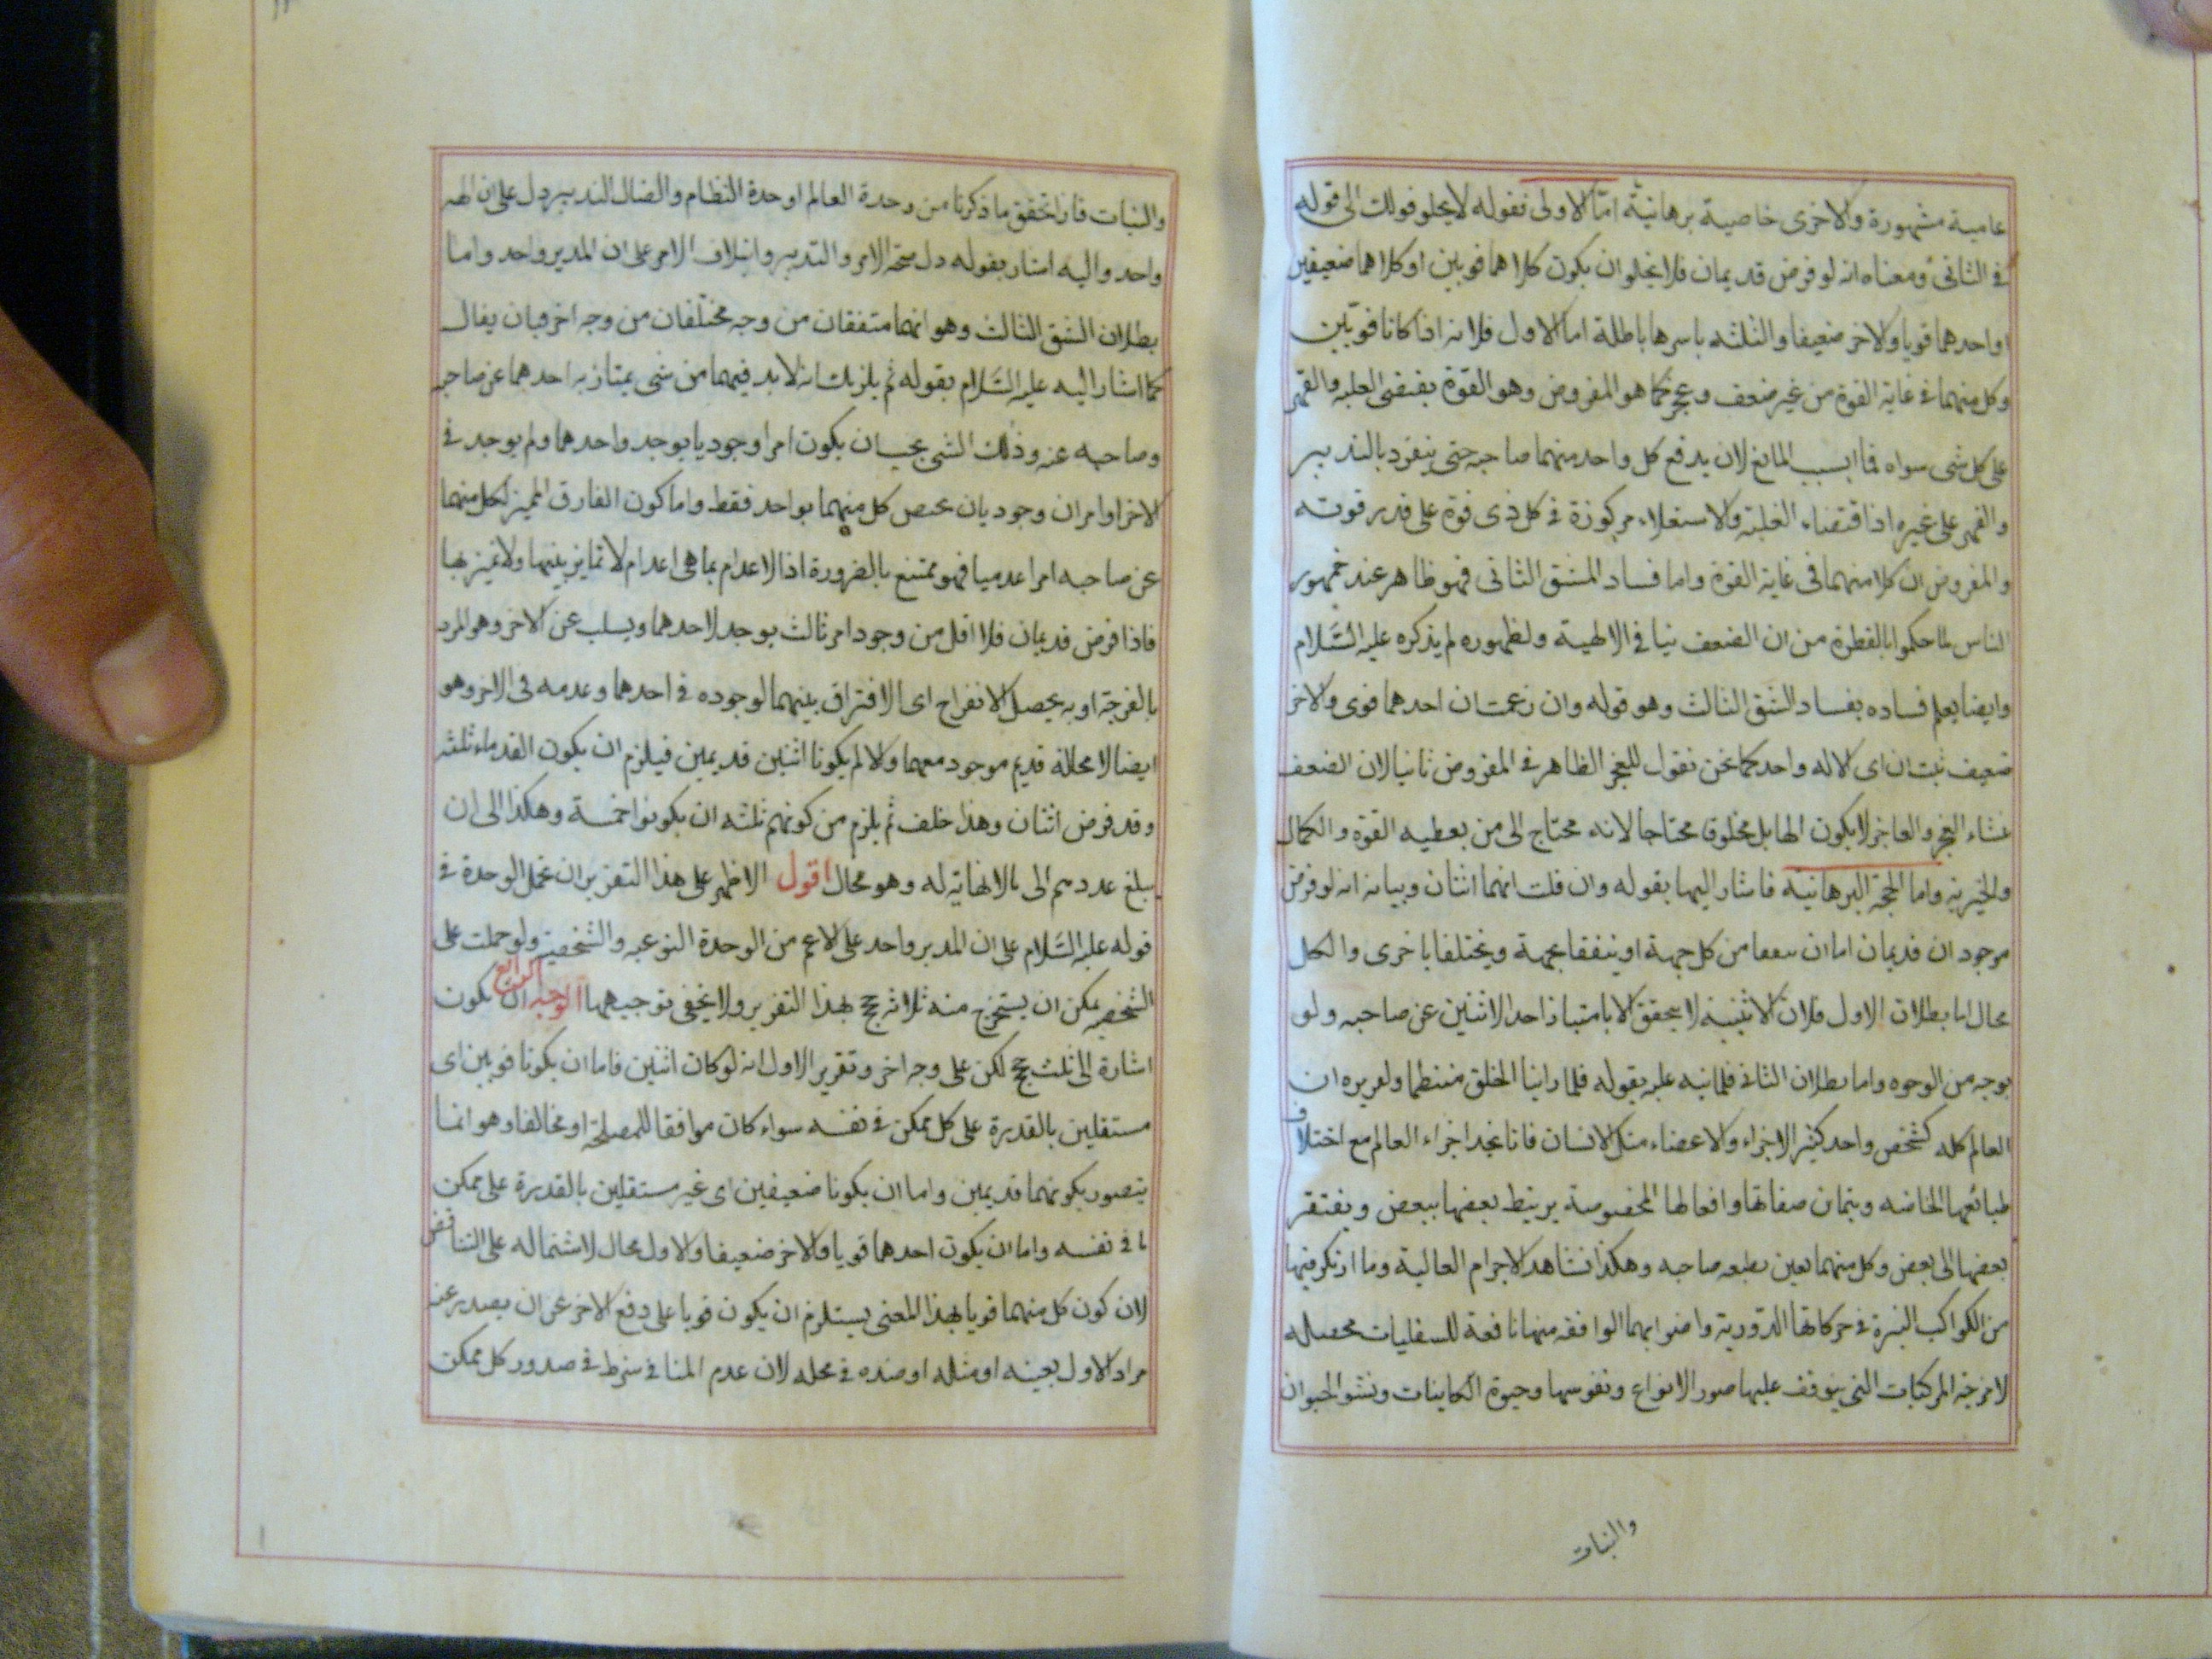 عامية مشهورة والاخرى خاصية برهانية امّا الاولى فقوله لا يخلو قولك الى قوله
في الثانى ومعناه انه لو فرض قديمان فلا يخلو ان يكون كلاهما قويين او كلاهما ضعيفين
او احدهما قويا والاخر ضعيفا والثلثه باسرها باطلة اما الاول فلانه اذا كانا قويّين
وكل منهما فى غاية القوة من غير ضعف وعجز كما هو المفروض وهو القوّة يقتضى الغلبه والقهر
على كل شى سواه فما السبب المانع لان يدفع كل واحد منهما صاحبه حتى ينفرد بالتدبير
والقهر على غيره اذ اقتضاء الغلبة والاستعلاء مركوزة فى كل ذى قوة على قدر قوته
والمفروض ان كلا منهما فى غاية القوة واما فساد الشق الثانى فهو ظاهر عند جمهور
الناس لما حكموا بالفطرة من ان الضعف ينافى الالهية ولظهوره لم يذكره عليه السَّلام
وايضا يعلم فساده بفساد الشق الثالث وهو قوله وان زعمت ان احدهما قوى والاخر
ضعيف ثبت ان اى الاله واحد كما نحن نقول للعجز الظاهر فى المفروض ثانيا لان الضعف
منشاء العجز والعاجز لا يكون الها بل مخلوقا محتاجا لانه محتاج الى من يعطيه القوة والكمال
والخيرية واما الحجة البرهانية فاشار اليها بقوله وان قلت انهما اثنان وبيانه انه لو فرض
موجودان قديمان اما ان يتفقا من كل جهة او يتفقا بجهة ويختلفا باخرى والكل
محال اما بطلان الاول فلان الاثنينية لا يتحقق الا بامتياز احد الاثنين عن صاحبه ولو
بوجه من الوجوه واما بطلان الثانى فلما نبه عليه بقوله فلما راينا الخلق منتظما وتقريره ان
العالم كله كشخص واحد كثير الاجزاء والاعضاء مثل الانسان فانا نجد اجزاء العالم مع اختلاف
طبائعها الخاصه وتباين صفاتها وافعالها المخصوصة يرتبط بعضها ببعض ويفتقر
بعضها الى بعض وكل منهما يعين بطبعه صاحبه وهكذا نشاهد الاجرام العالية وما ارتكز فيها
من الكواكب النيرة فى حركاتها الدّورية واضوائها الواقعة منها نافعة للسفليات محصله
لامزجة المركبات التى يتوقف عليها صور الانواع ونفوسها وحيوة الكاينات ونشو الحيوان
والنبات
والنبات فاذا تحقق ما ذكرنا من وحدة العالم لوحدة النظام واتصال التدبير دل على ان الهه
واحد واليه اشار بقوله دل صحة الامر والتدبير وائتلاف الامر على ان المدبر واحد واما
بطلان الشق الثالث وهو انهما متفقان من وجه مختلفان من وجه اخر فبان يقال
كما اشار اليه عليه السَّلام بقوله ثم يلزمك انه لا بد فيهما من شى يمتاز به احدهما عن صاحبه
وصاحبه عنه وذلك الشى يجب ان يكون امرا وجوديا يوجد واحدهما ولم يوجد فى
الاخر او امران وجوديان يختص كل منهما بواحد فقط واما كون الفارق المميز لكل منهما
عن صاحبه امرا عدميا فهو ممتنع بالضرورة اذ الاعدام بما هى اعدام لا تمايز بينها ولا تميز بها
فاذا فرض قديمان فلا اقل من وجود امر ثالث يوجد لاحدهما ويسلب عن الاخر وهو المراد
بالفرجة اذ به يحصل الانفراج اى الافتراق بينهما لوجوده فى احدهما وعدمه فى الاخر وهو
ايضا لا محالة قديم موجود معهما والا لم يكونا اثنين قديمين فيلزم ان يكون القدماء ثلثه
وقد فرض اثنان وهذا خلف ثم يلزم من كونهم ثلثه ان يكونوا خمسة وهكذا الى ان
يبلغ عددهم الى ما لا نهاية له وهو محال اقول الاظهر على هذا التقرير ان تحمل الوحدة فى
قوله عليه السَّلام على ان المدبر واحد على الاعم من الوحدة النوعيه والشخصية ولو حملت على
الشخصيه يمكن ان يستخرج منه ثلاثه حجج بهذا التقرير ولا يخفى توجيهها الوجه الرابع ان يكون
اشارة الى ثلث حجج لكن على وجه اخر وتقرير الاول انه لو كان اثنين فاما ان يكونا قويين اى
مستقلين بالقدرة على كل ممكن فى نفسه سواء كان موافقا للمصلحة او مخالفا وهو انما
يتصور بكونهما قديمين واما ان يكونا ضعيفين اى غير مستقلين بالقدرة على ممكن
ما فى نفسه واما ان يكون احدهما قويا والاخر ضعيفا والاول محال لاشتماله على التناقض
لان كون كل منهما قويا بهذا المعنى يستلزم ان يكون قويا على دفع الاخر عن ان يصدر عنه
مراد الاول بعينه او مثله او ضده فى محله لان عدم المنافى شرط فى صدور كل ممكن